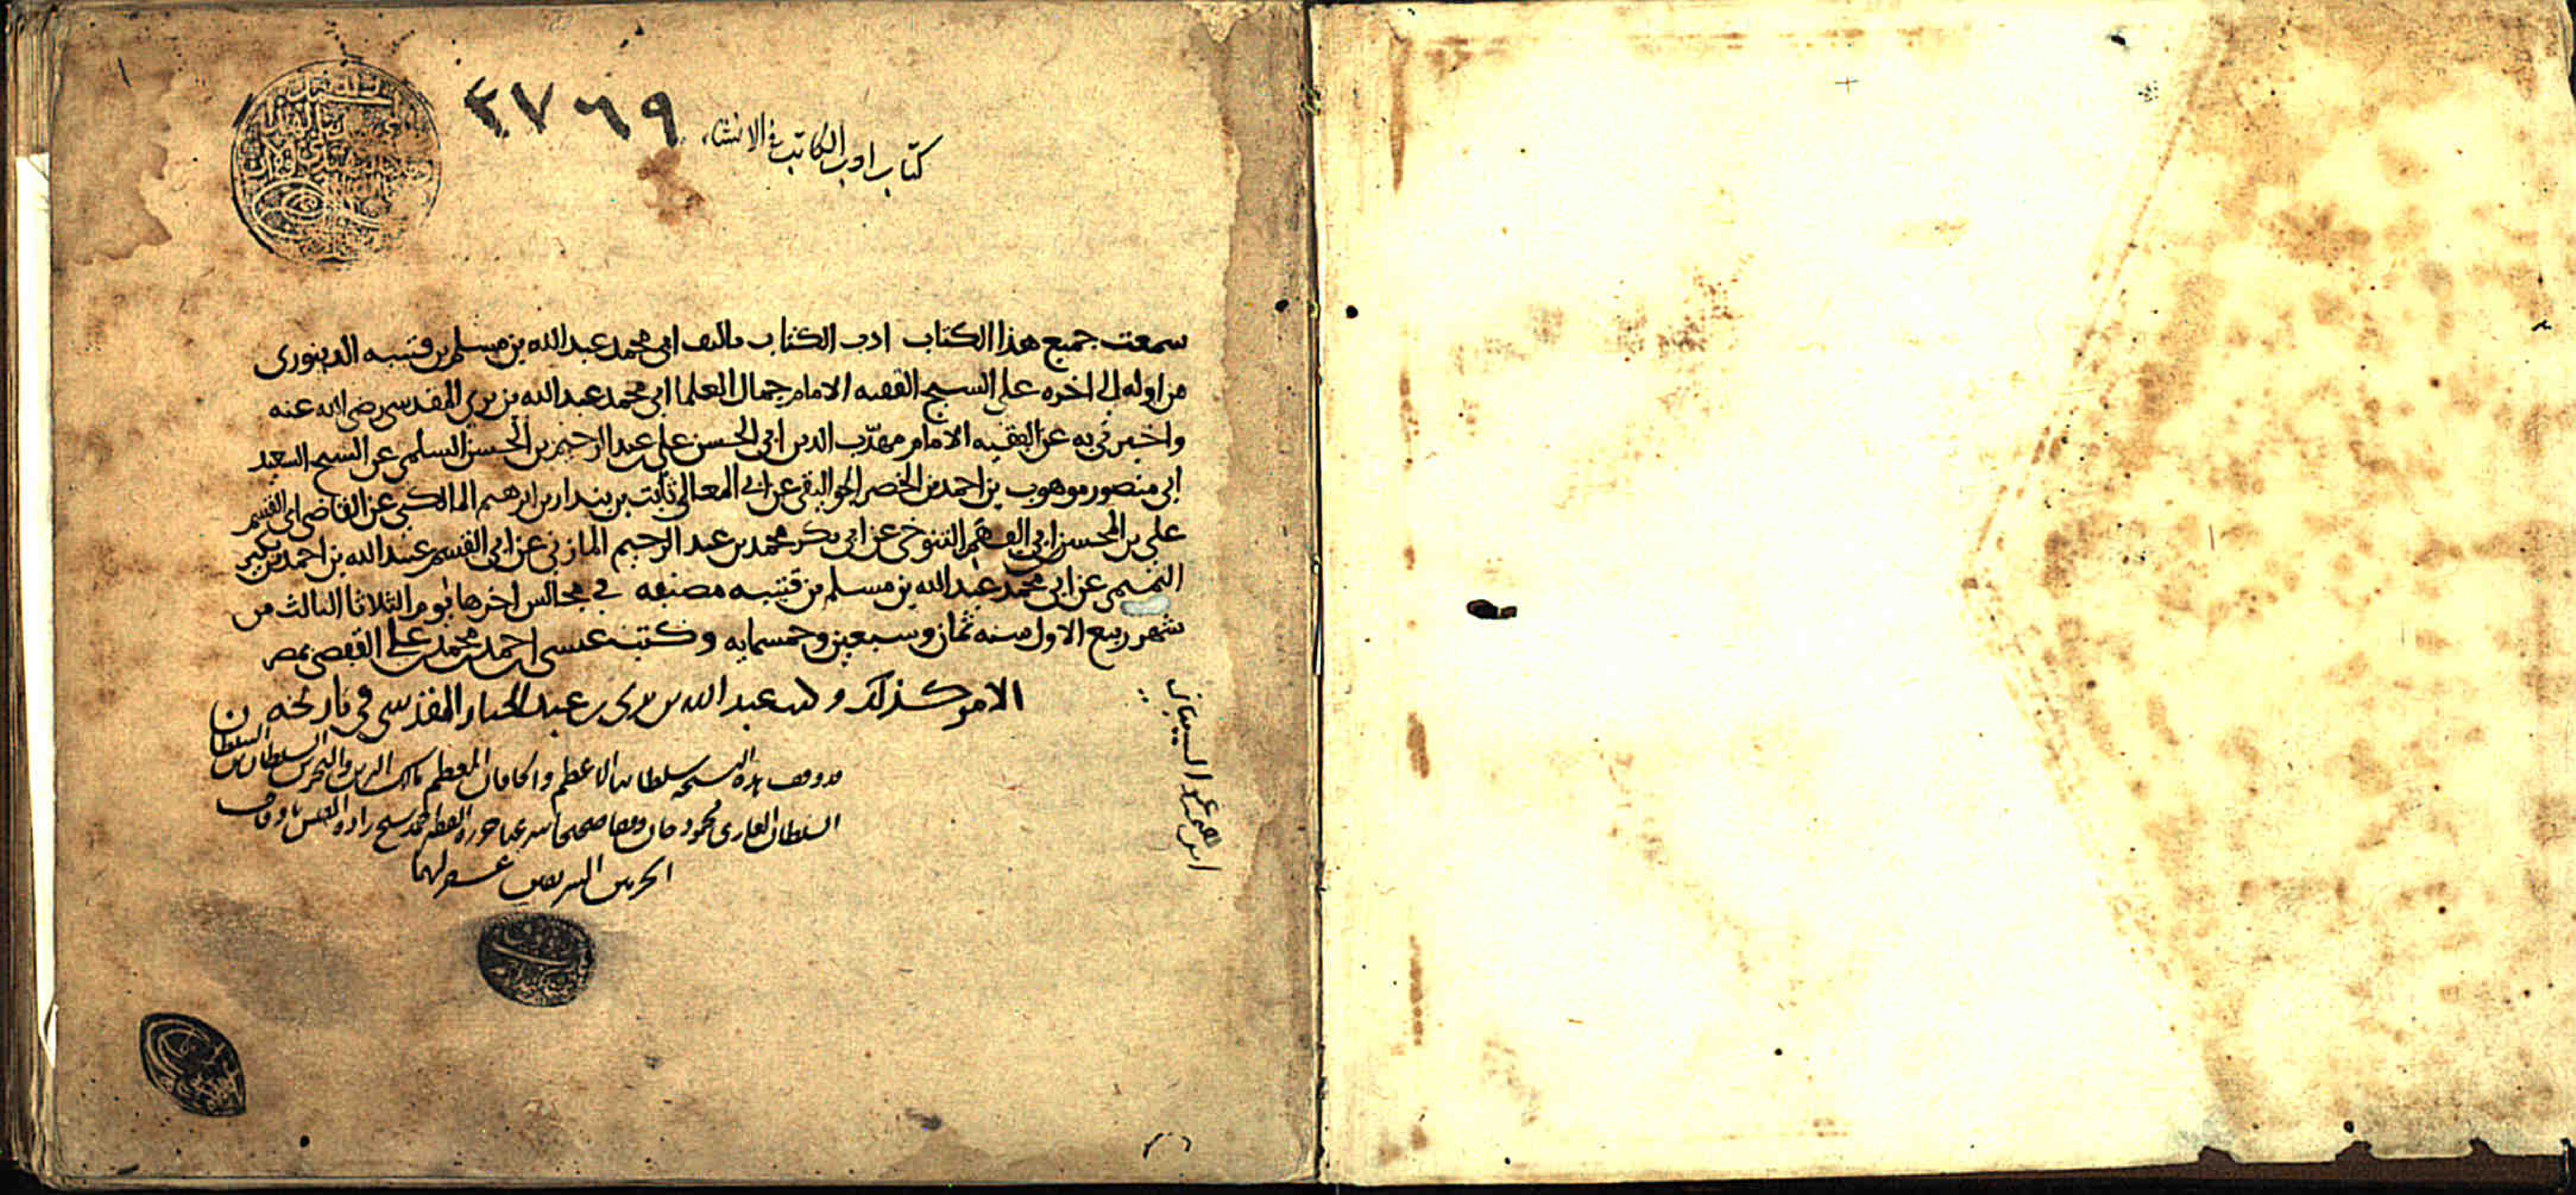 ٢٧٦٩
كتاب ادب الكاتب في الانشاء
سمعت جميع هذا الكتاب ادب الكتاب تاليف ابي محمد عبد الله بن مسلم بن قتيبه الدينوري
من اوله الى اخره على الشيخ الفقيه الامام جمال العلما ابي محمد عبد الله بن بري المقدسي رضي الله عنه
واخبرني به عن الفقيه الامام مهذب الدين ابي الحسن علي عبد الرحيم بن الحسن السلمي عن الشيخ السعيد
ابي منصور موهوب بن احمد بن الخضر الجواليقي عن ابي المعالي ثابت بن بندار بن ابرهيم المالكي عن القاضي ابي القسم
علي بن المحسن ابي الفهم التنوخي عن ابي بكر محمد بن عبد الرحيم المازني عن ابي القسم عبد الله بن احمد بن بكير
التميمي عن ابي محمد عبد الله بن مسلم بن قتيبه مصنفه في مجالس اخرها يوم الثلاثا الثالث من
شهر ربيع الاول سنه ثمان وسبعين وخمسمايه وكتب عيسى احمد محمد علي بمصر
الامر كذلك وكتب عبد الله بن بري بن عبد الجبار المقدسي في تاريخه
قد وقف هذه النسخه سلطاننا الاعظم والخاقان المعظم مالك البرين والبحرين السلطان بن السلطان
السلطان الغازي محمود خان وقفا صحيحا شرعيا حرره الفقير احمد شيخ زاده المفتش باوقاف
الحرمين الشريفين غفر لهما